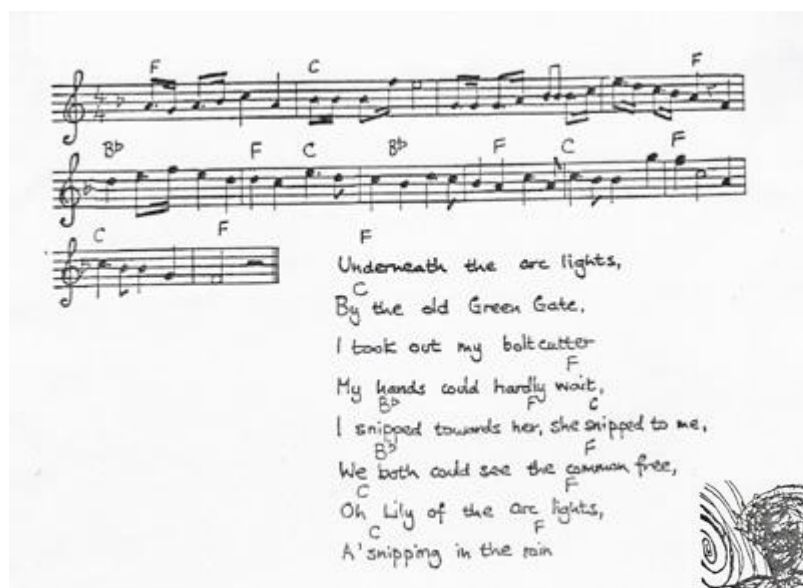 F C F
4
4
B♭ F C B♭ F C F
C F F
Underneath the arc lights,
C
By the old Green Gate,
I took out my boltcutter
F
My hands could hardly wait,
B♭ F C
I snipped towards her, she snipped to me,
B♭ F
We both could see the common free,
C F
Oh Lily of the arc lights,
C F
A'snipping in the rain